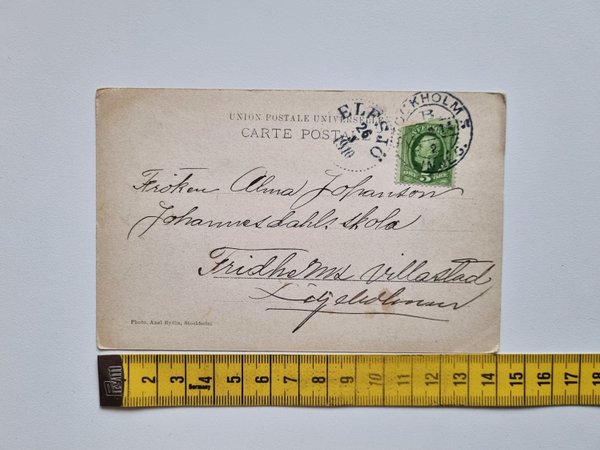 UNION POSTALE UNIVERSELLE
CARTE POSTALE
ELFSJÖ
26
3
1910
STOCKHOLM 8
13
5 ÖRE
Fröken Alma Johanson
Johannesdahls skola
Fridhems Villastad
Photo. Axel Rydin, Stockholm
2 3 4 5 6 7 8 9 10 11 12 13 14 15 16 17 18
Germany